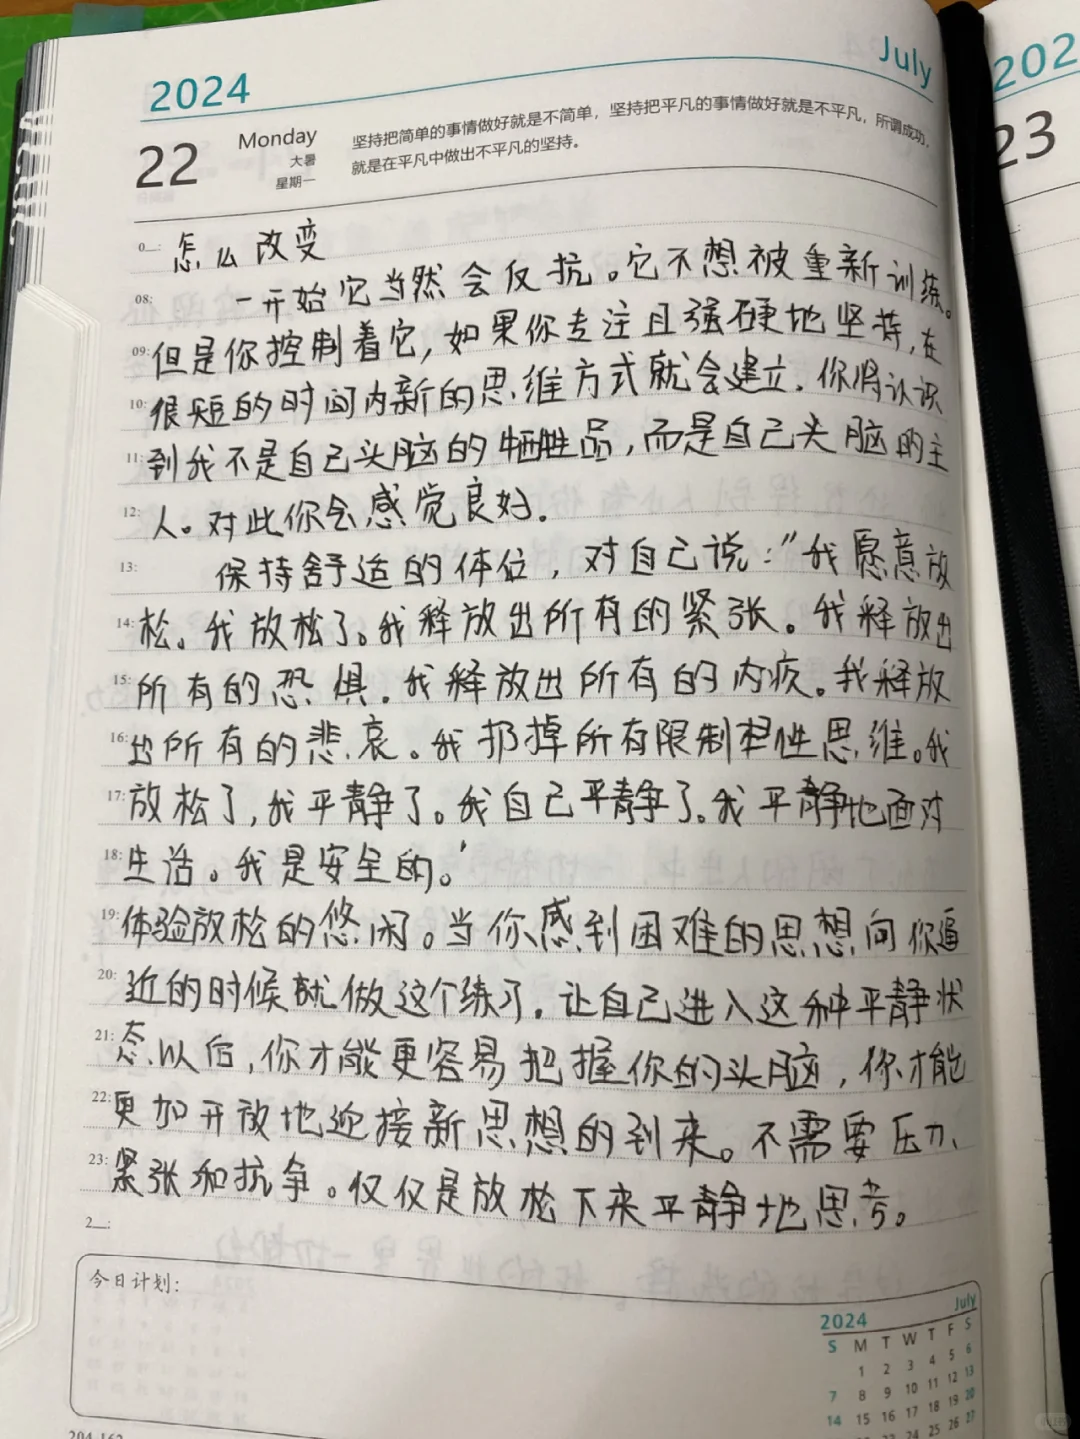 2024 July
22 Monday
大暑
星期一
坚持把简单的事情做好就是不简单，坚持把平凡的事情做好就是不平凡，所谓成功，
就是在平凡中做出不平凡的坚持。
202
23
0__: 怎么改变
08: 一开始它当然会反抗。它不想被重新训练。
09: 但是你控制着它，如果你专注且强硬地坚持，在
10: 很短的时间内新的思维方式就会建立．你将认识
11: 到我不是自己头脑的牺牲品，而是自己头脑的主
12: 人。对此你会感觉良好．
13: 保持舒适的体位，对自己说："我愿意放
14: 松。我放松了。我释放出所有的紧张。我释放出
15: 所有的恐惧。我释放出所有的内疚。我释放
16: 出所有的悲哀。我扔掉所有限制性思维。我
17: 放松了，我平静了。我自己平静了。我平静地面对
18: 生活。我是安全的。'
19: 体验放松的悠闲。当你感到困难的思想向你逼
20: 近的时候就做这个练习．让自己进入这种平静状
21: 态以后，你才能更容易把握你的头脑，你才能
22: 更加开放地迎接新思想的到来。不需要压力、
23: 紧张和抗争。仅仅是放松下来平静地思考。
2__:
今日计划：
2024 July
S M T W T F S
1 2 3 4 5 6
7 8 9 10 11 12 13
14 15 16 17 18 19 20
24 25 26 27